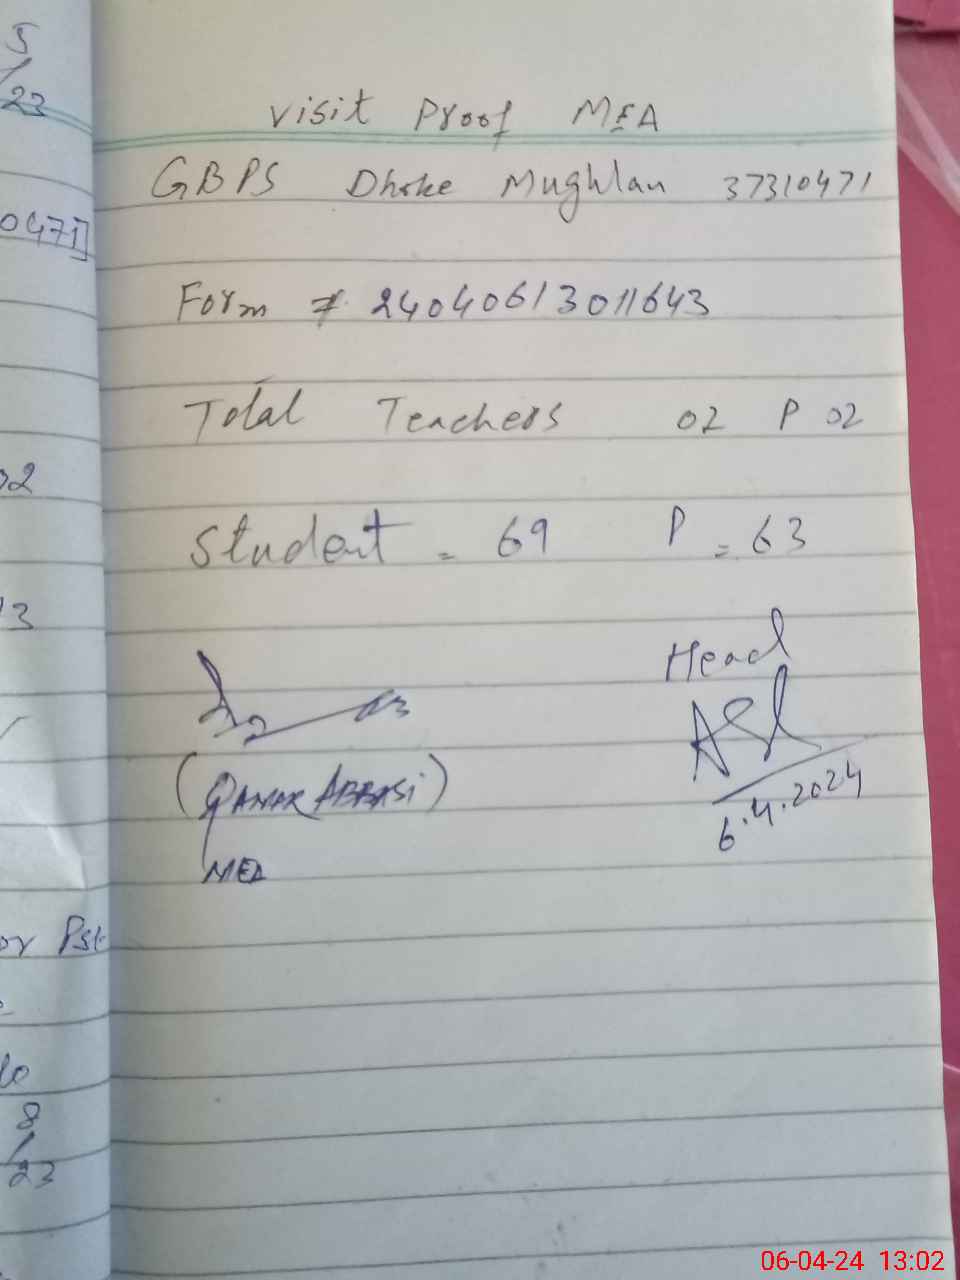 5
/
23
0471]
02
13
or Pst
10
8
/
23
visit Proof MEA
GBPS Dhoke Mughlan 37310471
Form # 24040613011643
Total Teachers 02 P 02
Student = 69 P = 63
Head
6.4.2024
(QAMAR ABBASI)
MEA
06-04-24 13:02